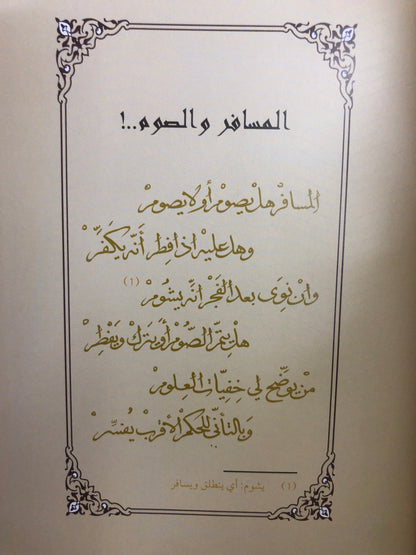 المسافر والصوم..!
المسافرْ هل يصومْ أو لا يصومْ
وهل عليهْ اذا فطِرْ أنّه يكَفِّرْ
وانْ نوى بعد الفجرْ انّه يشُومْ (١)
هل يتمّ الصّومْ أو يتركْ ويفْطِرْ
منْ يوضّح لي خفِيّات العلومْ
وبالتأنّي للحكم الأقربْ يُفسِّرْ
(١) يشوم: أي ينطلق ويسافر